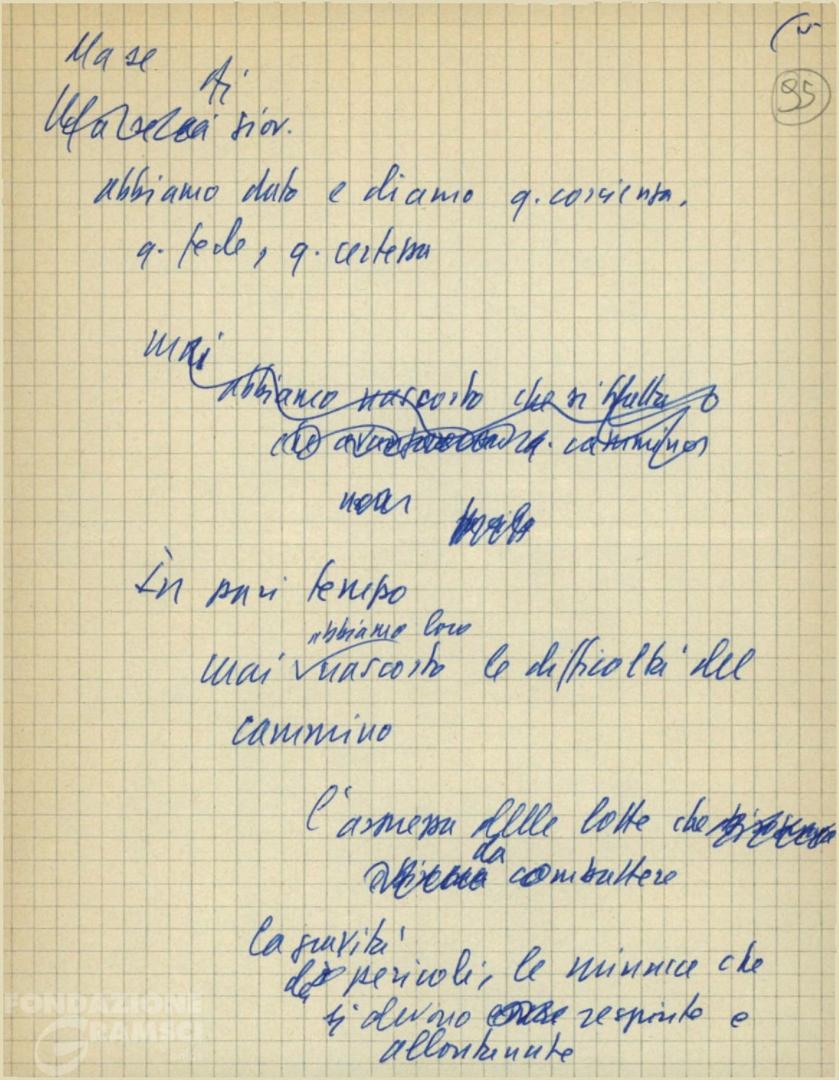 Ma se
ai
giov.
95
abbiamo dato e diamo q. coscienza,
q. fede, q. certezza
mai
abbiamo nascosto che si tratta
che q. cammino
non
In pari tempo
abbiamo loro
mai nascosto le difficoltà del
cammino
l'asprezza delle lotte che
da
combattere
la gravità
dei pericoli, le minacce che
si devono respinte e
allontanate
FONDAZIONE
GRAMSCI